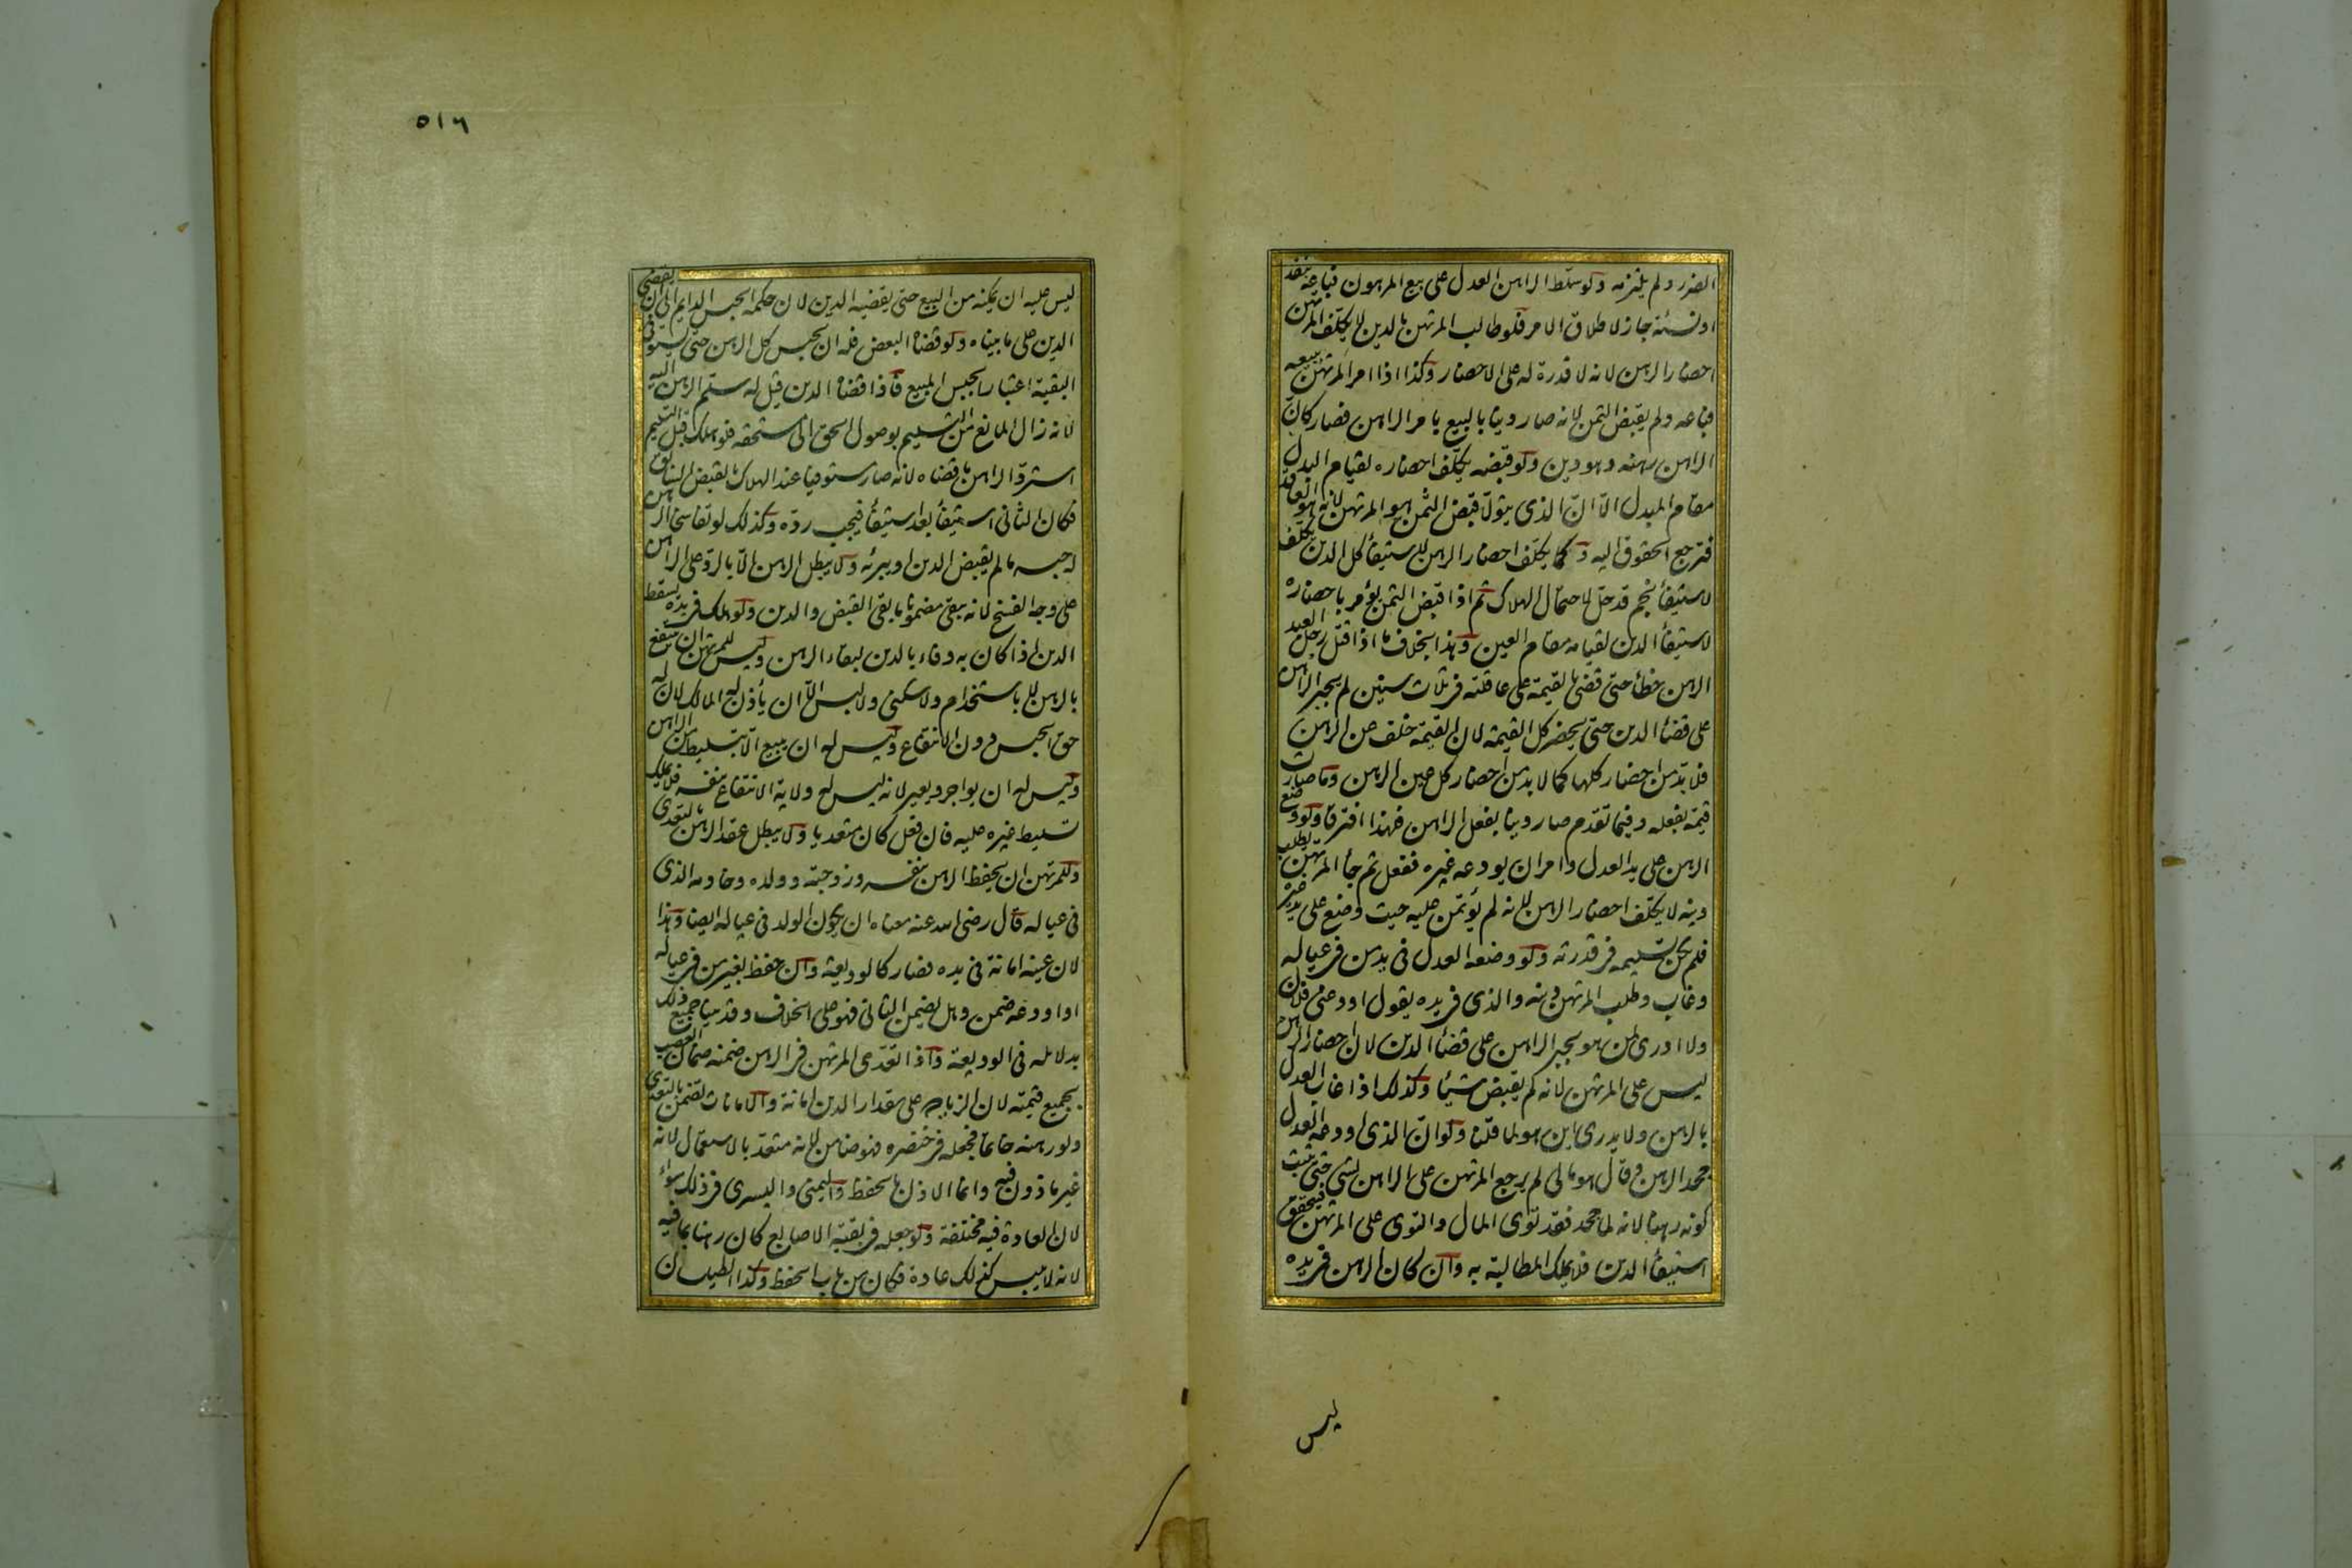 الضرر ولم يلتزمه ولو سلّط الراهن العدل على بيع المرهون فباعه بنقد
او نسئة جاز لاطلاق الامر فلو طالب المرتهن بالدين لا يكلّف المرتهن
احضار الرهن لانه لا قدرة له على الاحضار وكذا اذا امر المرتهن ببيعه
فباعه ولم يقبض الثمن لانه صار دينا بالبيع بامر الراهن فصار كانّ
الراهن رهنه وهو دين ولو قبضه يكلّف احضاره لقيام البدل
مقام المبدل الّا انّ الذى يتولّا قبض الثمن هو المرتهن لانه هو العاقد
فترجع الحقوق اليه وكما يكلّف احضار الرهن لاستيفاء كل الدين يكلّف
لاستيفاء نجم قد حلّ لاحتمال الهلاك ثم اذا قبض الثمن يؤمر باحضاره
لاستيفاء الدين لقيامه مقام العين وهذا بخلاف ما اذا قتل رجل العبد
الرهن خطأ حتى قضى بالقيمة على عاقلته فى ثلاث سنين لم يجبر الراهن
على قضاء الدين حتى يحضر كل القيمة لان القيمة خلف عن الرهن
فلا بدّ من احضار كلها كما لا بد من احضار كل عين الرهن وما صارت
قيمة بفعله وفيما تقدّم صار دينا بفعل الراهن فلهذا افترقا ولو وضع
الرهن على يد العدل وامر ان يودعه غيره ففعل ثم جاء المرتهن يطلب
دينه لا يكلّف احضار الرهن لانه لم يؤتمن عليه حيث وضع على يد غيره
فلم يكن تسليمه فى قدرته ولو وضعه العدل فى يد من فى عياله
وغاب وطلب المرتهن دينه والذى فى يده يقول اودعنى فلان
ولا ادرى لمن هو يجبر الراهن على قضاء الدين لان احضار الرهن
ليس على المرتهن لانه لم يقبض شيئا وكذلك اذا غاب العدل
بالرهن ولا يدرى اين هو لما قلنا ولو انّ الذى اودعه العدل
جحد الرهن وقال هو مالى لم يرجع المرتهن على الراهن بشى حتى يثبت
كونه رهنا لانه لما جحد فقد توى المال والتوى على المرتهن فيتحقق
استيفاء الدين فلا يملك المطالبة به وان كان الرهن فى يده
ليس
٥١٦
ليس عليه ان يمكنه من البيع حتى يقضيه الدين لان حكمه الحبس الدايم الى ان يقضى
الدين على ما بيناه ولو قضاه البعض فله ان يحبس كل الرهن حتى يستوفى
البقية اعتبارا بحبس المبيع فاذا قضاه الدين قيل له سلّم الرهن اليه
لانه زال المانع من التسليم بوصول الحق الى مستحقه فلو هلك قبل التسليم
استردّ الراهن ما قضاه لانه صار مستوفيا عند الهلاك بالقبض السابق
فكان الثانى استيفاء بعد استيفاء فيجب ردّه وكذلك لو تفاسخا الرهن
له حبسه ما لم يقبض الدين او يبرئه ولا يبطل الرهن الّا بالردّ على الراهن
على وجه الفسخ لانه يبقى مضمونا ما بقى القبض والدين ولو هلك فى يده سقط
الدين اذا كان به وفاء بالدين لبقاء الرهن وليس للمرتهن ان ينتفع
بالرهن لا باستخدام ولا سكنى ولا لبس الّا ان يأذن له المالك لان له
حق الحبس دون الانتفاع وليس له ان يبيع الّا بتسليط من الراهن
وليس له ان يواجر ويعير لانه ليس له ولاية الانتفاع بنفسه فلا يملك
تسليط غيره عليه فان فعل كان متعديا ولا يبطل عقد الرهن بالتعدى
وللمرتهن ان يحفظ الرهن بنفسه وزوجته وولده وخادمه الذى
فى عياله قال رضى الله عنه معناه ان يكون الولد فى عياله ايضا وهذا
لان عينه امانة فى يده فصار كالوديعة وان حفظ بغير من فى عياله
او اودعه ضمن وهل يضمن الثانى فهو على الخلاف وقد بينا جميع ذلك
بدلائله فى الوديعة واذا تعدّى المرتهن فى الرهن ضمنه ضمان الغصب
بجميع قيمته لان الزيادة على مقدار الدين امانة والامانات تضمن بالتعدى
ولو رهنه خاتما فجعله فى خنصره فهو ضامن لانه متعدّ بالاستعمال لانه
غير ماذون فيه وانما الاذن بالحفظ واليمنى واليسرى فى ذلك سواء
لان العادة فيه مختلفة ولو جعله فى بقيّة الاصابع كان رهنا بما فيه
لانه لا يلبس كذلك عادة فكان من باب الحفظ وكذا الطيلسان